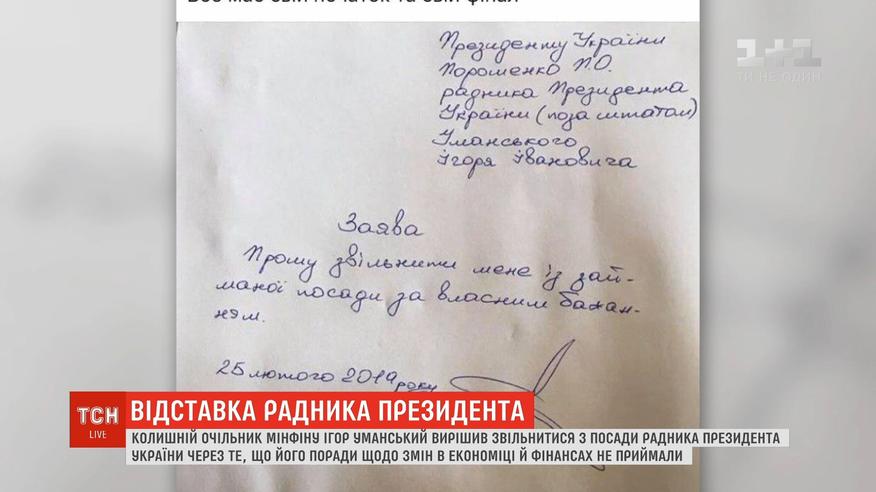 Все має свій початок та свій фінал
Президенту України
Порошенко П.О.
радника Президента
України (поза штатом)
Уманського
Ігоря Івановича
Заява
Прошу звільнити мене із зай-
маної посади за власним бажан-
ням.
25 лютого 2019 року
1+1
ТИ НЕ ОДИН
ТСН
LIVE
ВІДСТАВКА РАДНИКА ПРЕЗИДЕНТА
КОЛИШНІЙ ОЧІЛЬНИК МІНФІНУ ІГОР УМАНСЬКИЙ ВИРІШИВ ЗВІЛЬНИТИСЯ З ПОСАДИ РАДНИКА ПРЕЗИДЕНТА
УКРАЇНИ ЧЕРЕЗ ТЕ, ЩО ЙОГО ПОРАДИ ЩОДО ЗМІН В ЕКОНОМІЦІ Й ФІНАНСАХ НЕ ПРИЙМАЛИ